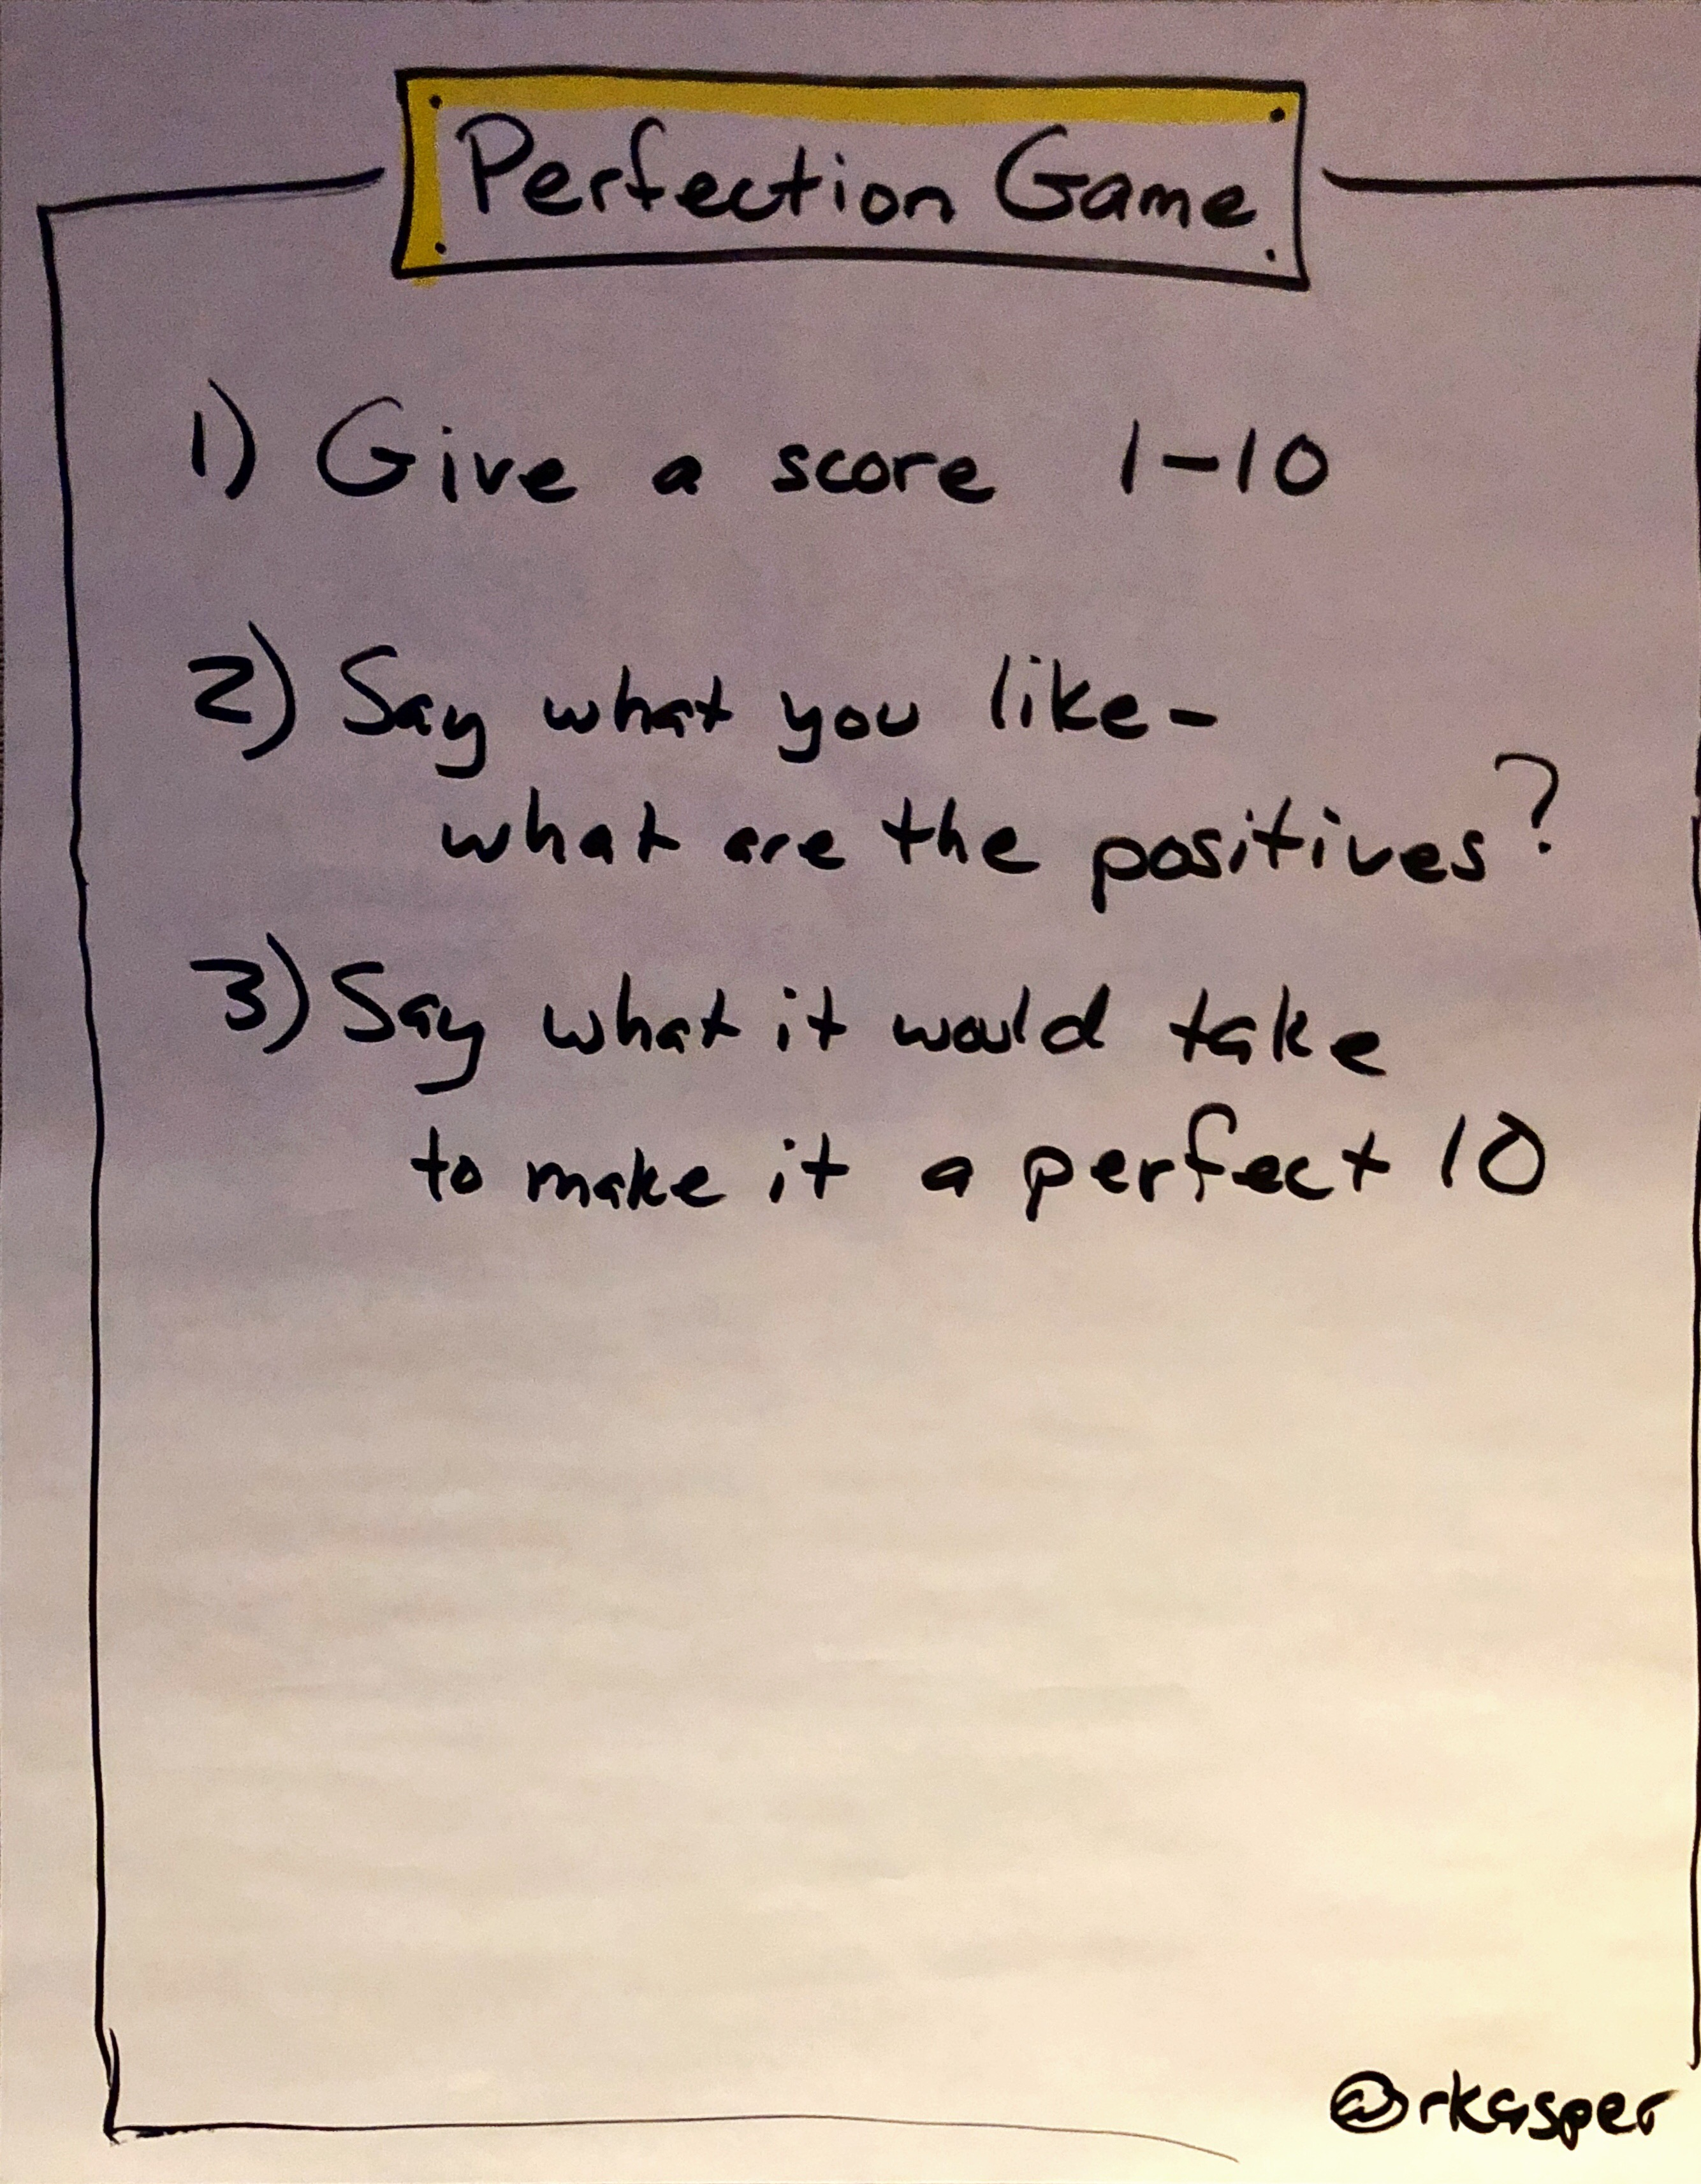 Perfection Game
1) Give a score 1-10
2) Say what you like-
what are the positives?
3) Say what it would take
to make it a perfect 10
@rkasper